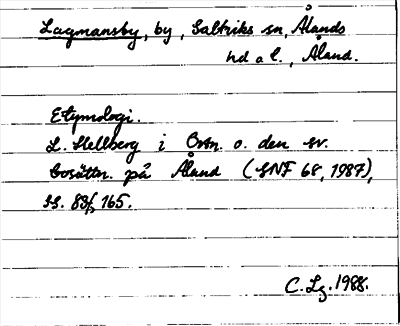 Lagmansby, by, Saltviks sn, Ålands
hd o l., Åland.
Etymologi.
L. Hellberg i Ortn. o. den sv.
bosättn. på Åland (SNF 68, 1987),
ss. 83f, 165.
C. Lg. 1988.